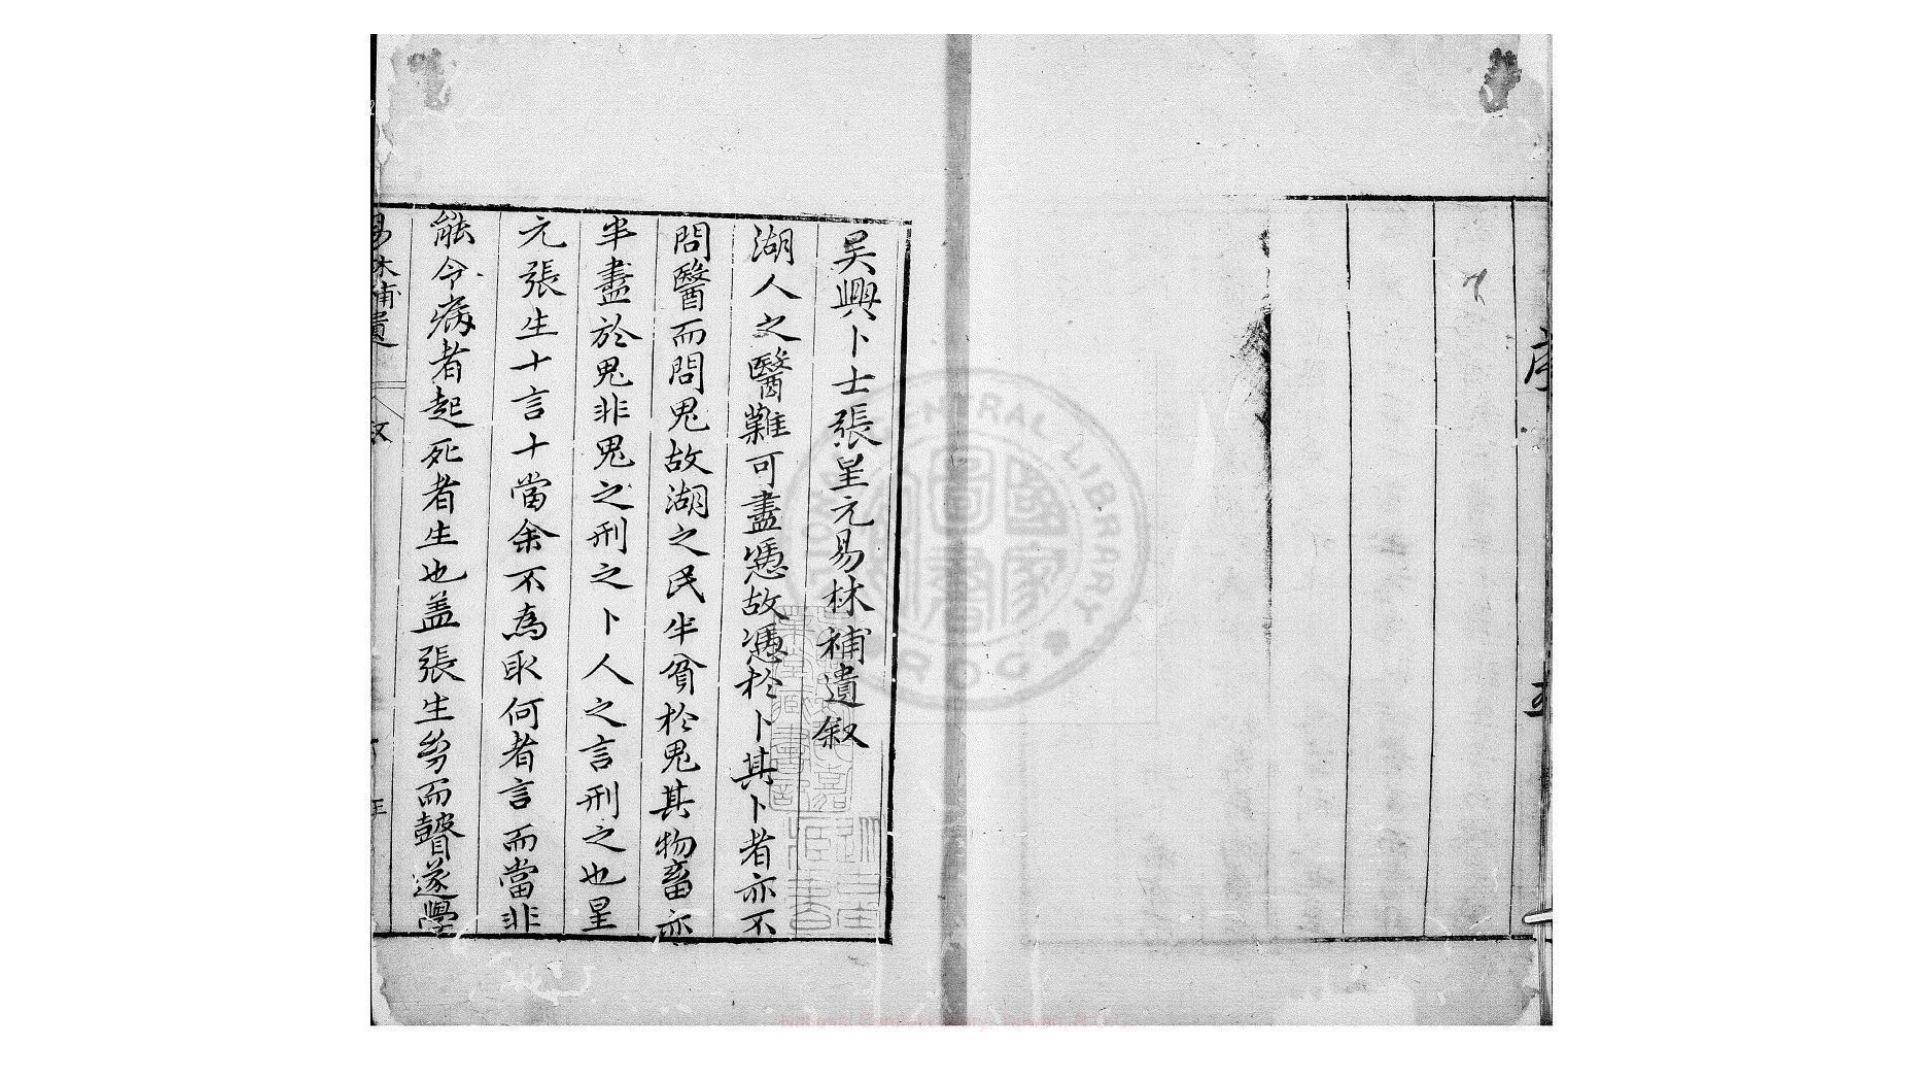 序
吳興卜士張星元易林補遺叙
湖人之醫難可盡憑故憑於卜其卜者亦不
問醫而問鬼故湖之民半貧於鬼其物畜亦
半盡於鬼非鬼之刑之卜人之言刑之也星
元張生十言十當余不為取何者言而當非
能令病者起死者生也盖張生㓜而瞽遂學
易林補遺 叙
CENTRAL LIBRARY
R.O.C
國家圖書